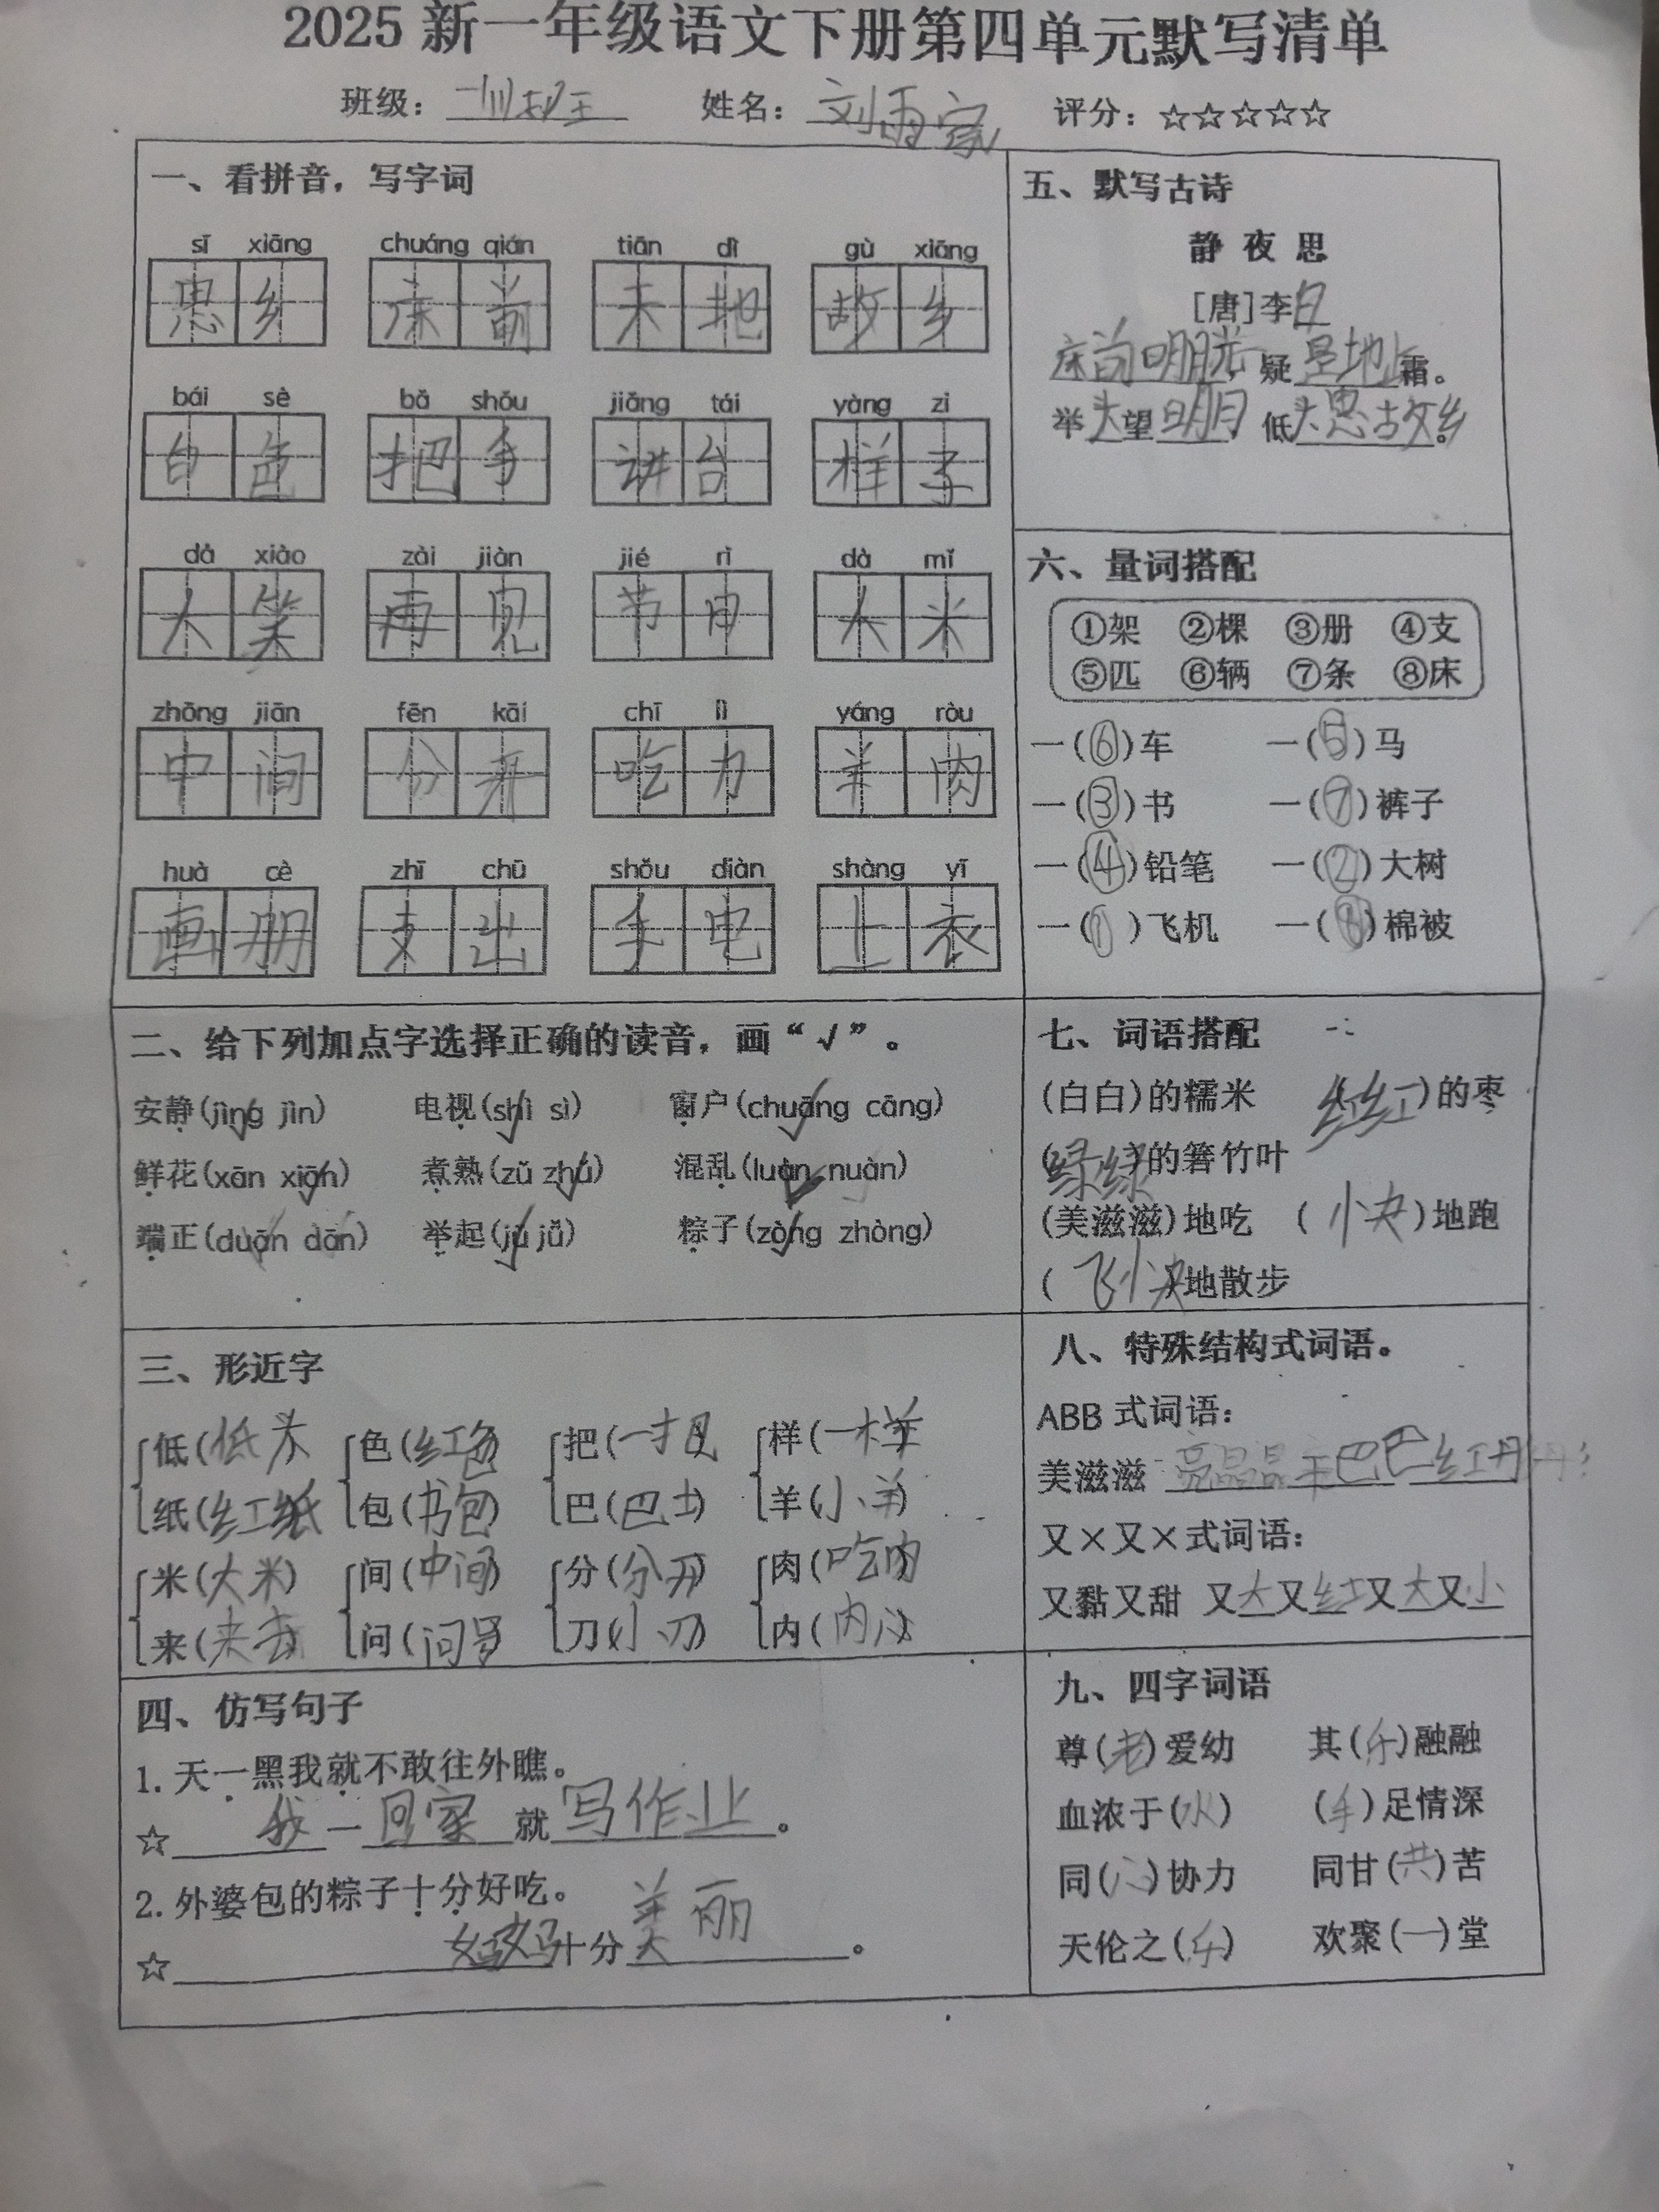 2025新一年级语文下册第四单元默写清单
班级： 姓名：刘雨家 评分：☆☆☆☆☆
一、看拼音，写字词
sī xiāng chuáng qián tiān dì gù xiāng
思乡 床前 天地 故乡
bái sè bǎ shǒu jiǎng tái yàng zi
白色 把手 讲台 样子
dà xiào zài jiàn jié rì dà mǐ
大笑 再见 节日 大米
zhōng jiān fēn kāi chī lì yáng ròu
中间 分开 吃力 羊肉
huà cè zhī chū shǒu diàn shàng yī
画册 支出 手电 上衣
二、给下列加点字选择正确的读音，画“√”。
安静(jìng jìn) 电视(shì sì) 窗户(chuāng cāng)
鲜花(xān xiān) 煮熟(zǔ zhǔ) 混乱(luàn nuàn)
端正(duān dān) 举起(jǔ jǚ) 粽子(zòng zhòng)
三、形近字
低(低头) 色(红色) 把(一把) 样(一样)
纸(红纸) 包(书包) 巴(巴士) 羊(小羊)
米(大米) 间(中间) 分(分开) 肉(吃肉)
来(来去) 问(问号) 刀(小刀) 内(内心)
四、仿写句子
1.天一黑我就不敢往外瞧。
☆我一回家就写作业。
2.外婆包的粽子十分好吃。
☆妈妈十分美丽。
五、默写古诗
静夜思
[唐]李白
床前明月光，疑是地上霜。
举头望明月，低头思故乡。
六、量词搭配
①架 ②棵 ③册 ④支
⑤匹 ⑥辆 ⑦条 ⑧床
一(⑥)车 一(⑤)马
一(③)书 一(⑦)裤子
一(④)铅笔 一(②)大树
一(①)飞机 一(⑧)棉被
七、词语搭配
(白白)的糯米 (红红)的枣
(绿绿)的箬竹叶
(美滋滋)地吃 (小快)地跑
(飞小快)地散步
八、特殊结构式词语。
ABB式词语：
美滋滋 亮晶晶 干巴巴 红丹丹
又×又×式词语：
又黏又甜 又大又红 又大又小
九、四字词语
尊(老)爱幼 其(乐)融融
血浓于(水) (手)足情深
同(心)协力 同甘(共)苦
天伦之(乐) 欢聚(一)堂